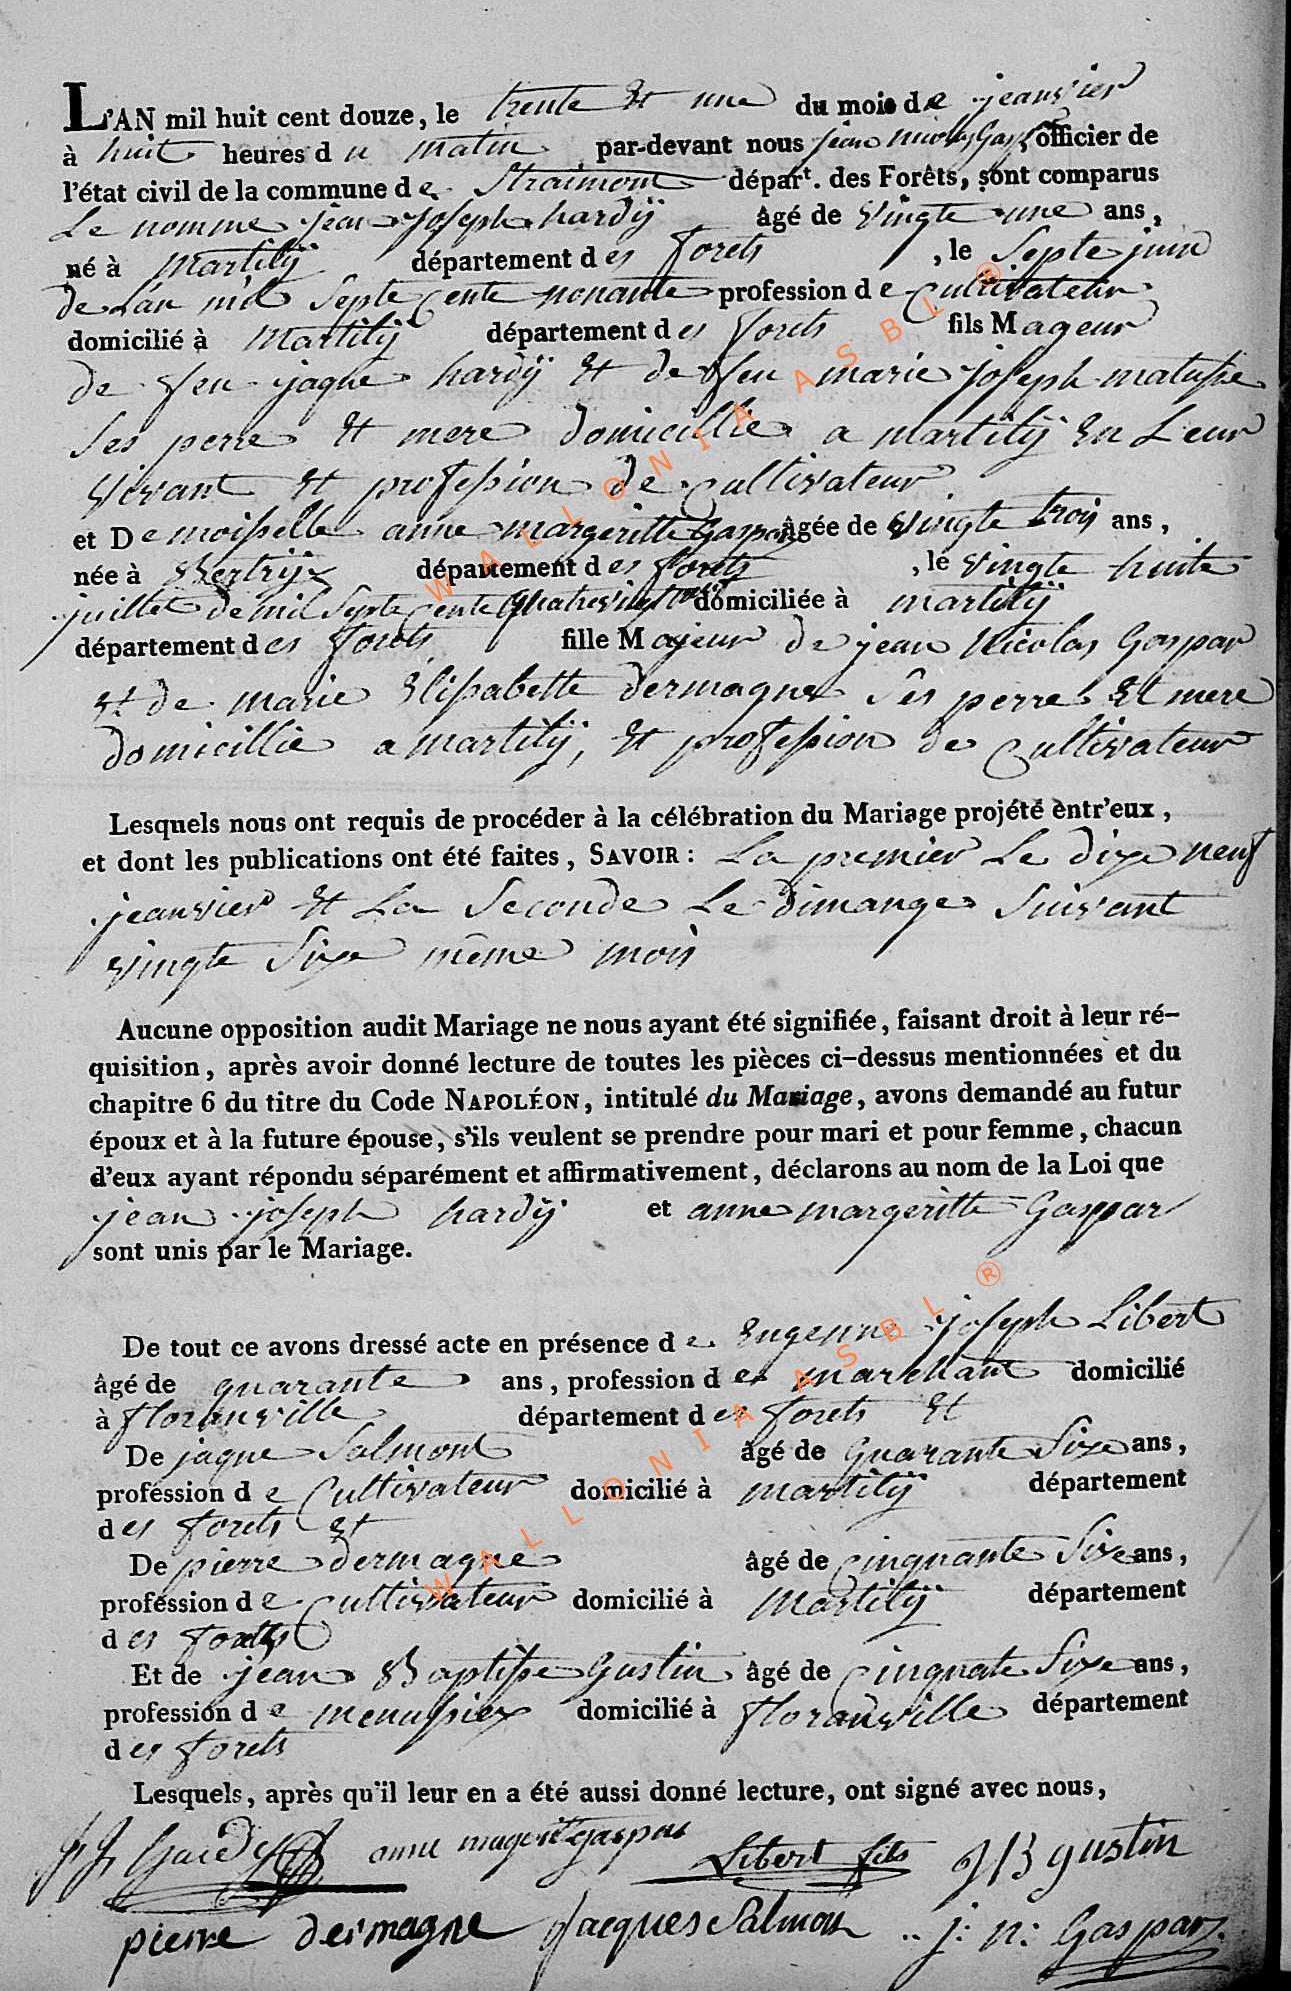 L'AN mil huit cent douze, le trente Et une du mois de jeanvier
à huit heures du matin par-devant nous jean nicolas Gaspar officier de
l'état civil de la commune de Straimont départ. des Forêts, sont comparus
Le nomme jean joseph hardÿ âgé de vingte une ans,
né à Martilÿ département des forets, le Septe juin
de L'an mil Septe Cente nonante profession de Cultivateur
domicilié à Martilÿ département des forets fils Mageur
de feu jaque hardÿ Et de feu marie joseph
Ses perre Et mere domicillie a Martilÿ En Leur
vivant Et profession de Cultivateur
et Demoiselle anne margeritte Gaspar âgée de Vingte trois ans,
née à Bertrix département des forets, le vingte huite
juillet de mil Septe Cente quatrevingt domiciliée à martilÿ
département des forets fille Majeur de jean Nicolas Gaspar
Et de marie Elisabette dermagne Ses perre Et mere
domicillie a martilÿ, Et profession de Cultivateur
Lesquels nous ont requis de procéder à la célébration du Mariage projété entr'eux,
et dont les publications ont été faites, SAVOIR: La premier Le dixe neuf
jeanvier Et La Seconde Le dimange Suivant
vingte Sixe même mois
Aucune opposition audit Mariage ne nous ayant été signifiée, faisant droit à leur ré-
quisition, après avoir donné lecture de toutes les pièces ci-dessus mentionnées et du
chapitre 6 du titre du Code NAPOLÉON, intitulé du Mariage, avons demandé au futur
époux et à la future épouse, s'ils veulent se prendre pour mari et pour femme, chacun
d'eux ayant répondu séparément et affirmativement, déclarons au nom de la Loi que
jean joseph hardÿ et anne margeritte Gaspar
sont unis par le Mariage.
De tout ce avons dressé acte en présence de Eugenne joseph Libert
âgé de quarante ans, profession de marchant domicilié
à floranville département des forets Et
De jaque Salmont âgé de Quarante Sixe ans,
profession de Cultivateur domicilié à martilÿ département
des forets Et
De pierre dermagne âgé de Cinquante Sixe ans,
profession de Cultivateur domicilié à Martilÿ département
des forets
Et de jean Baptisse Gustin âgé de Cinquate Sixe ans,
profession de menusiex domicilié à floranville département
des forets
Lesquels, après qu'il leur en a été aussi donné lecture, ont signé avec nous,
anne magerit gaspar Libert fils J B gustin
pierre dermagne Jacques Salmon j: n: Gaspar
WALLONIA ASBL ®
WALLONIA ASBL ®